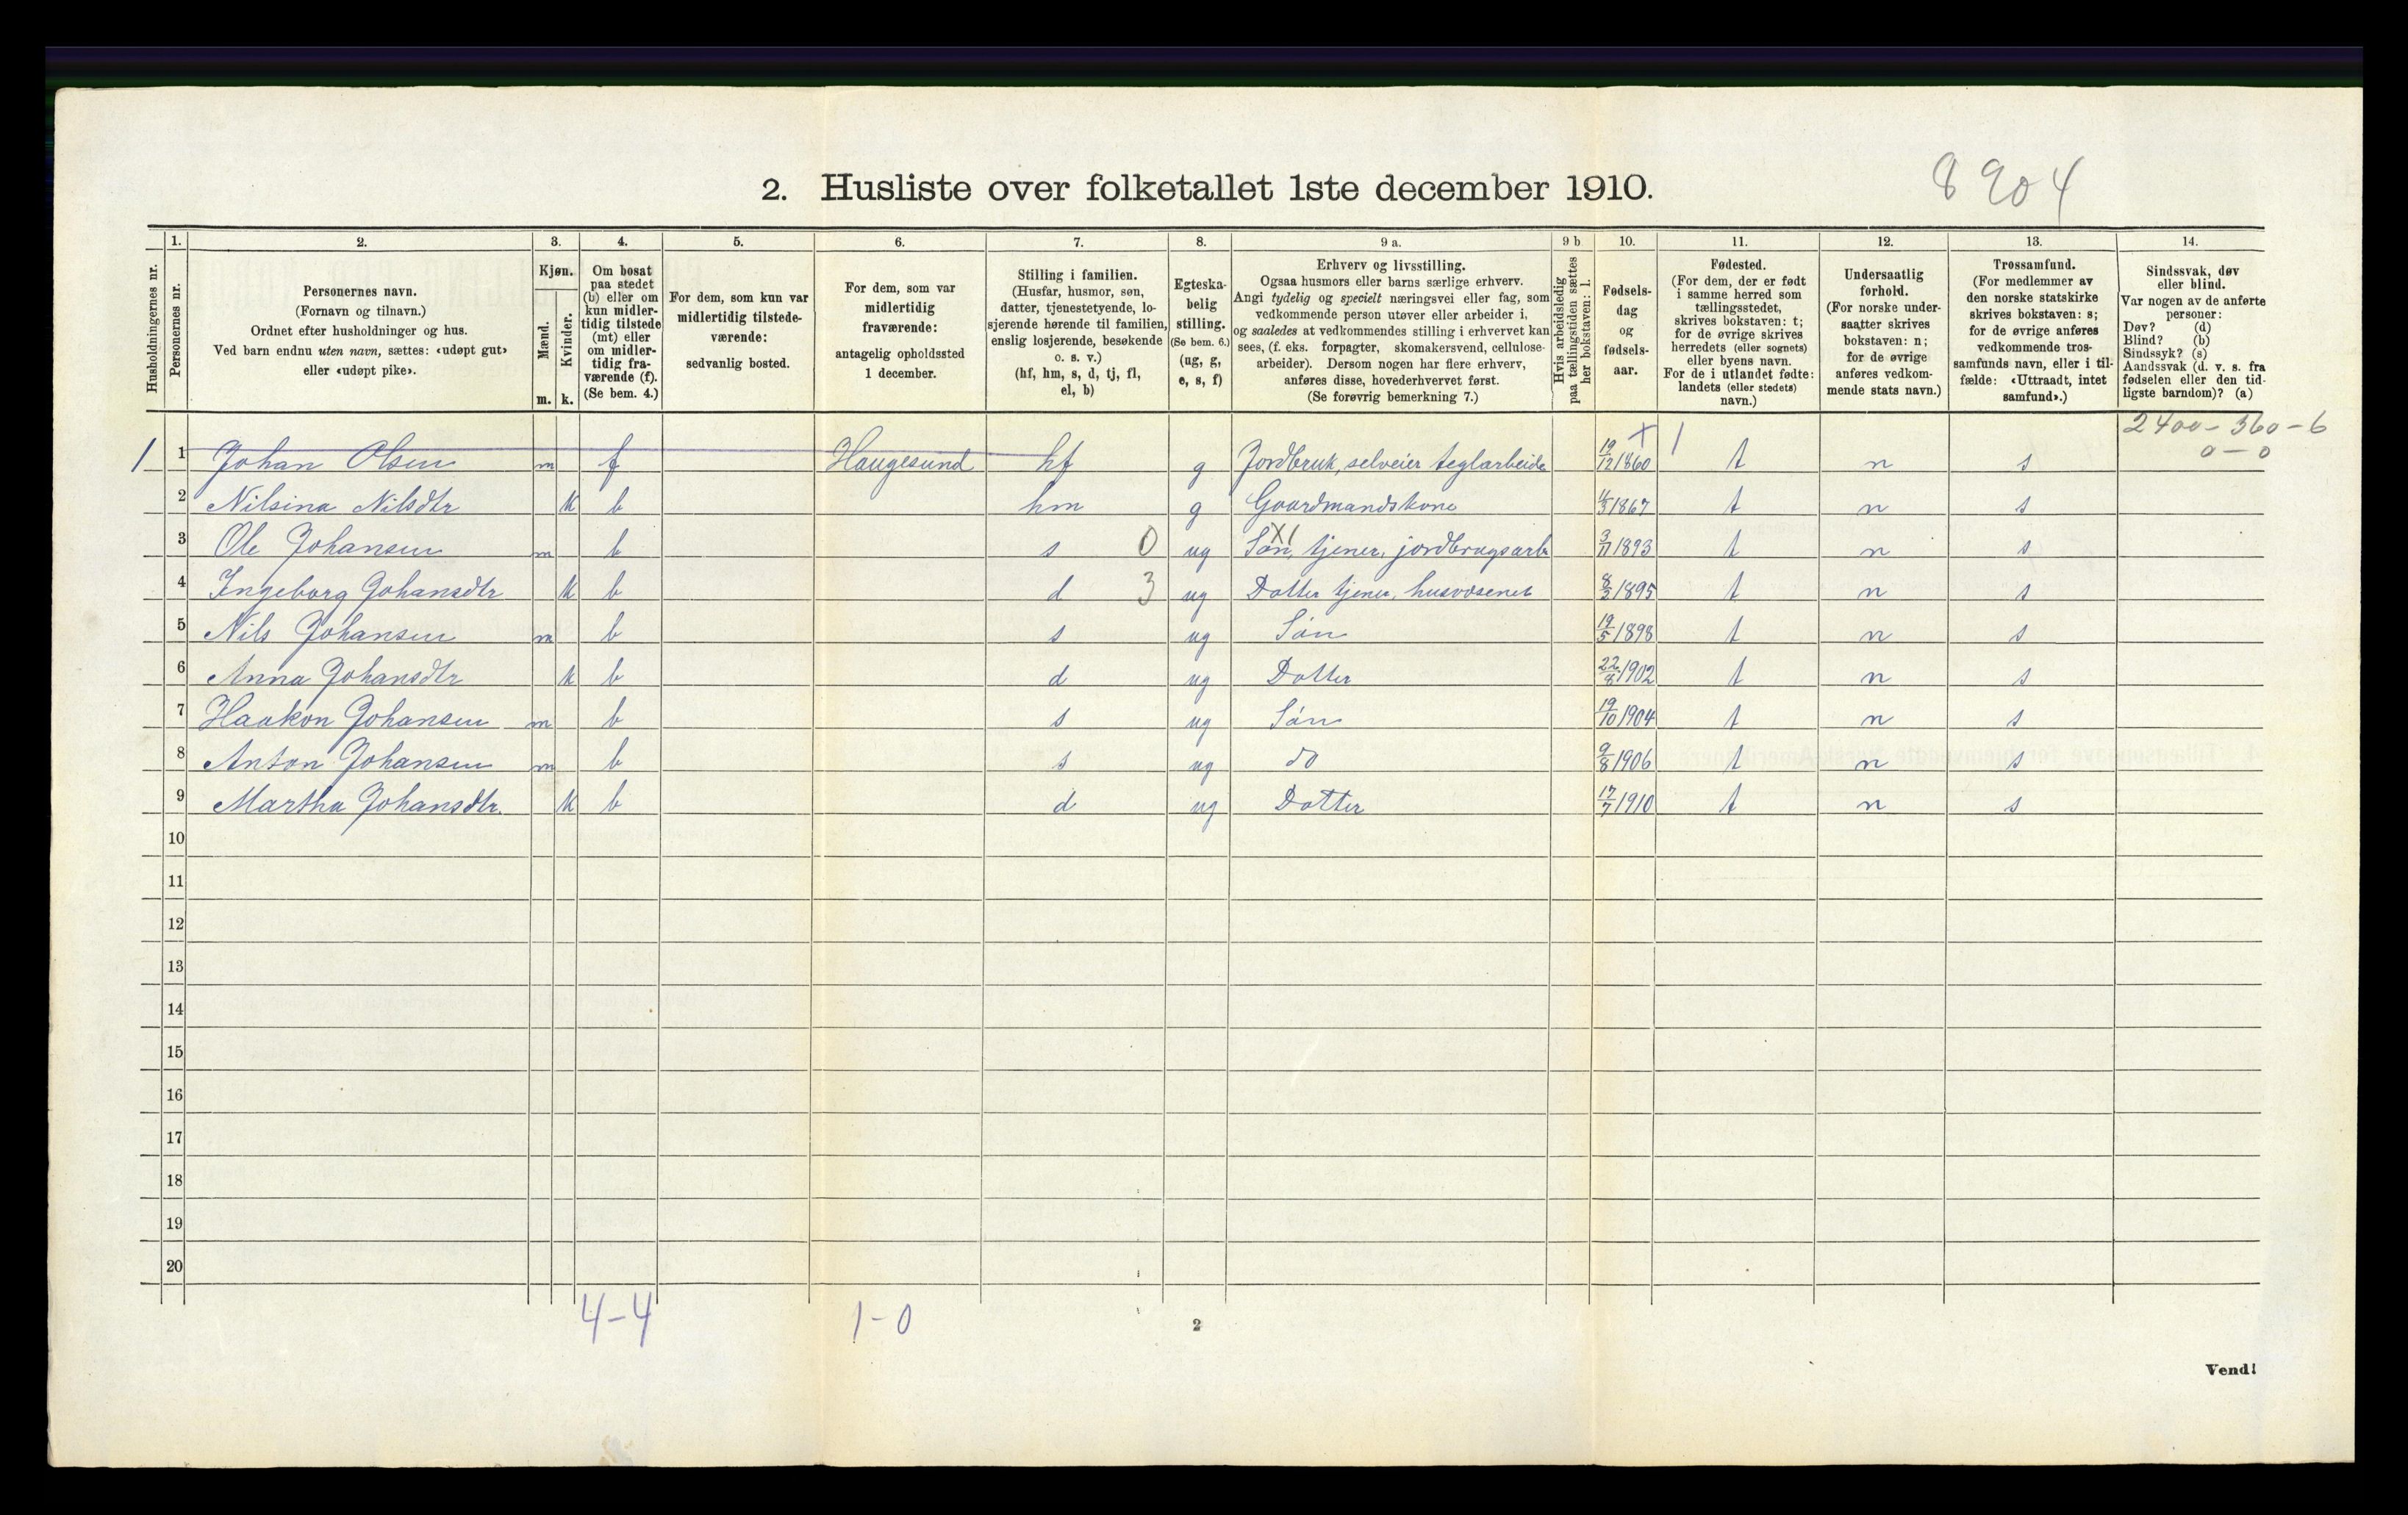 8904
2. Husliste over folketallet 1ste december 1910.
Husholdningernes nr.
1. Personernes nr.
2. Personernes navn. (Fornavn og tilnavn.) Ordnet efter husholdninger og hus. Ved barn endnu uten navn, sættes: «udøpt gut» eller «udøpt pike».
3. Kjøn. Mænd. m. Kvinder. k.
4. Om bosat paa stedet (b) eller om kun midlertidig tilstede (mt) eller om midlertidig fraværende (f). (Se bem. 4.)
5. For dem, som kun var midlertidig tilstedeværende: sedvanlig bosted.
6. For dem, som var midlertidig fraværende: antagelig opholdssted 1 december.
7. Stilling i familien. (Husfar, husmor, søn, datter, tjenestetyende, losjerende hørende til familien, enslig losjerende, besøkende o. s. v.) (hf, hm, s, d, tj, fl, el, b)
8. Egteskabelig stilling. (Se bem. 6.) (ug, g, e, s, f)
9 a. Erhverv og livsstilling. Ogsaa husmors eller barns særlige erhverv. Angi tydelig og specielt næringsvei eller fag, som vedkommende person utøver eller arbeider i, og saaledes at vedkommendes stilling i erhvervet kan sees, (f. eks. forpagter, skomakersvend, cellulosearbeider). Dersom nogen har flere erhverv, anføres disse, hovederhvervet først. (Se forøvrig bemerkning 7.)
9 b Hvis arbeidsledig paa tællingstiden sættes her bokstaven: l.
10. Fødselsdag og fødselsaar.
11. Fødested. (For dem, der er født i samme herred som tællingsstedet, skrives bokstaven: t; for de øvrige skrives herredets (eller sognets) eller byens navn. For de i utlandet fødte: landets (eller stedets) navn.)
12. Undersaatlig forhold. (For norske undersaatter skrives bokstaven: n; for de øvrige anføres vedkommende stats navn.)
13. Trossamfund. (For medlemmer av den norske statskirke skrives bokstaven: s; for de øvrige anføres vedkommende trossamfunds navn, eller i tilfælde: «Uttraadt, intet samfund».)
14. Sindssvak, døv eller blind. Var nogen av de anførte personer: Døv? (d) Blind? (b) Sindssyk? (s) Aandssvak (d. v. s. fra fødselen eller den tidligste barndom)? (a)
2400-360-6
0-0
1 1 Johan Olsen m f Haugesund hf g Jordbruk, selveier teglarbeide 19/12 1860 t n s
2 Nilsina Nilsdtr k b hm g Gaardmandskone 4/3 1867 t n s
3 Ole Johansen m b s 0 ug Søn, tjener, jordbrugsarb 3/11 1893 t n s
4 Ingeborg Johansdtr k b d 3 ug Datter tjener, husvæsenet 8/2 1895 t n s
5 Nils Johansen m b s ug Søn 19/5 1898 t n s
6 Anna Johansdtr k b d ug Datter 22/8 1902 t n s
7 Haakon Johansen m b s ug Søn 19/10 1904 t n s
8 Anton Johansen m b s ug do 9/8 1906 t n s
9 Martha Johansdtr. k b d ug Datter 17/7 1910 t n s
10
11
12
13
14
15
16
17
18
19
20
4-4 1-0
2
Vend!